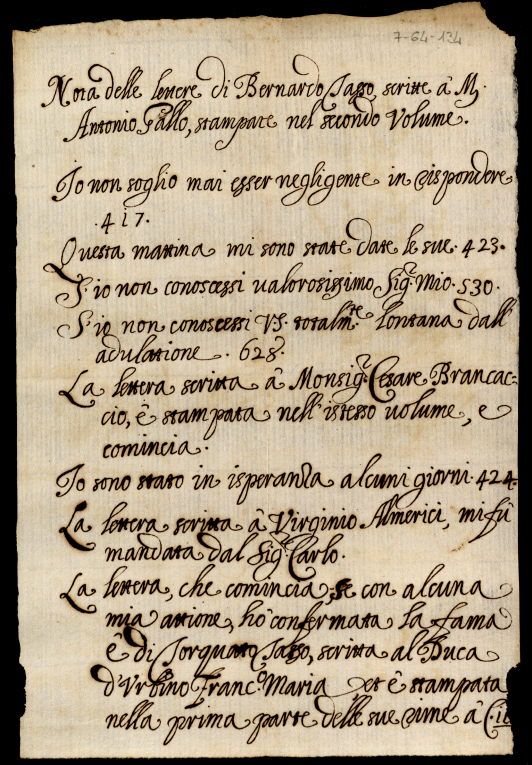 7-64-134
Nota delle lettere di Bernardo Tasso scritte à M.
Antonio Gallo, stampate nel secondo Volume.
Io non soglio mai esser negligente in rispondere
.417.
Questa mattina mi sono state date le sue .423.
S'io non conoscessi valorosissimo Sig.r Mio. 530.
S'io non conoscessi V.S. totalm.te lontana dall'
adulatione . 628.
La lettera scritta à Monsig.r Cesare Brancac-
cio, è stampata nell'istesso volume, e
comincia.
Io sono stato in isperanza alcuni giorni .424.
La lettera scritta à Virginio Almerici, mi fù
mandata dal Sig.r Carlo.
La lettera, che comincia, se con alcuna
mia attione, hò confermata la fama
è di Torquato Tasso, scritta al Duca
d'Urbino Franc.o Maria et è stampata
nella prima parte delle sue rime à